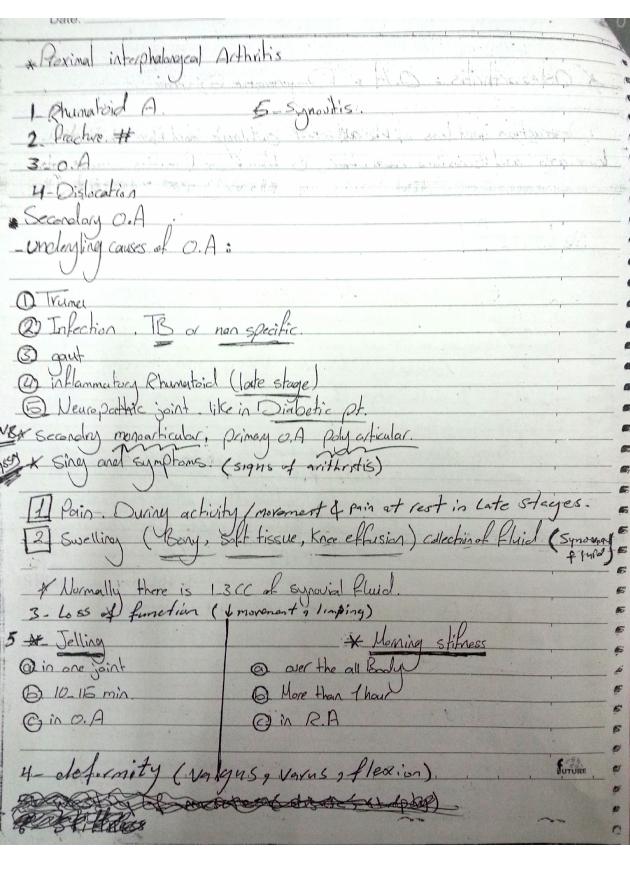 Date:
* Proximal interphalangeal Arthritis
1- Rhumatoid A. 5- Synovitis.
2. Fracture. #
3- O.A
4- Dislocation
• Secondary O.A
- Underlying causes of O.A :
① Truma
② Infection. TB or non specific.
③ gout
④ inflammatory Rhumatoid (late stage)
⑤ Neuropathic joint. like in Diabetic pt.
NB* Secondry monoarticular, primary O.A poly articular.
* Sing and symptoms. (signs of arithrstis)
1 Pain. During activity / movement & pain at rest in Late stages.
2 Swelling (Bony, Soft tissue, Knee effusion) collection of fluid (Synovial fluid)
* Normally there is 1-3 CC of synovial fluid.
3- Loss of function (↓ movement, limping)
5 * Jelling * Morning stifness
ⓐ in one joint ⓐ over the all Body
ⓑ 10-15 min. ⓑ More than 1 hour
ⓒ in O.A ⓒ in R.A
4- deformity (valgus, varus, flexion).
FUTURE